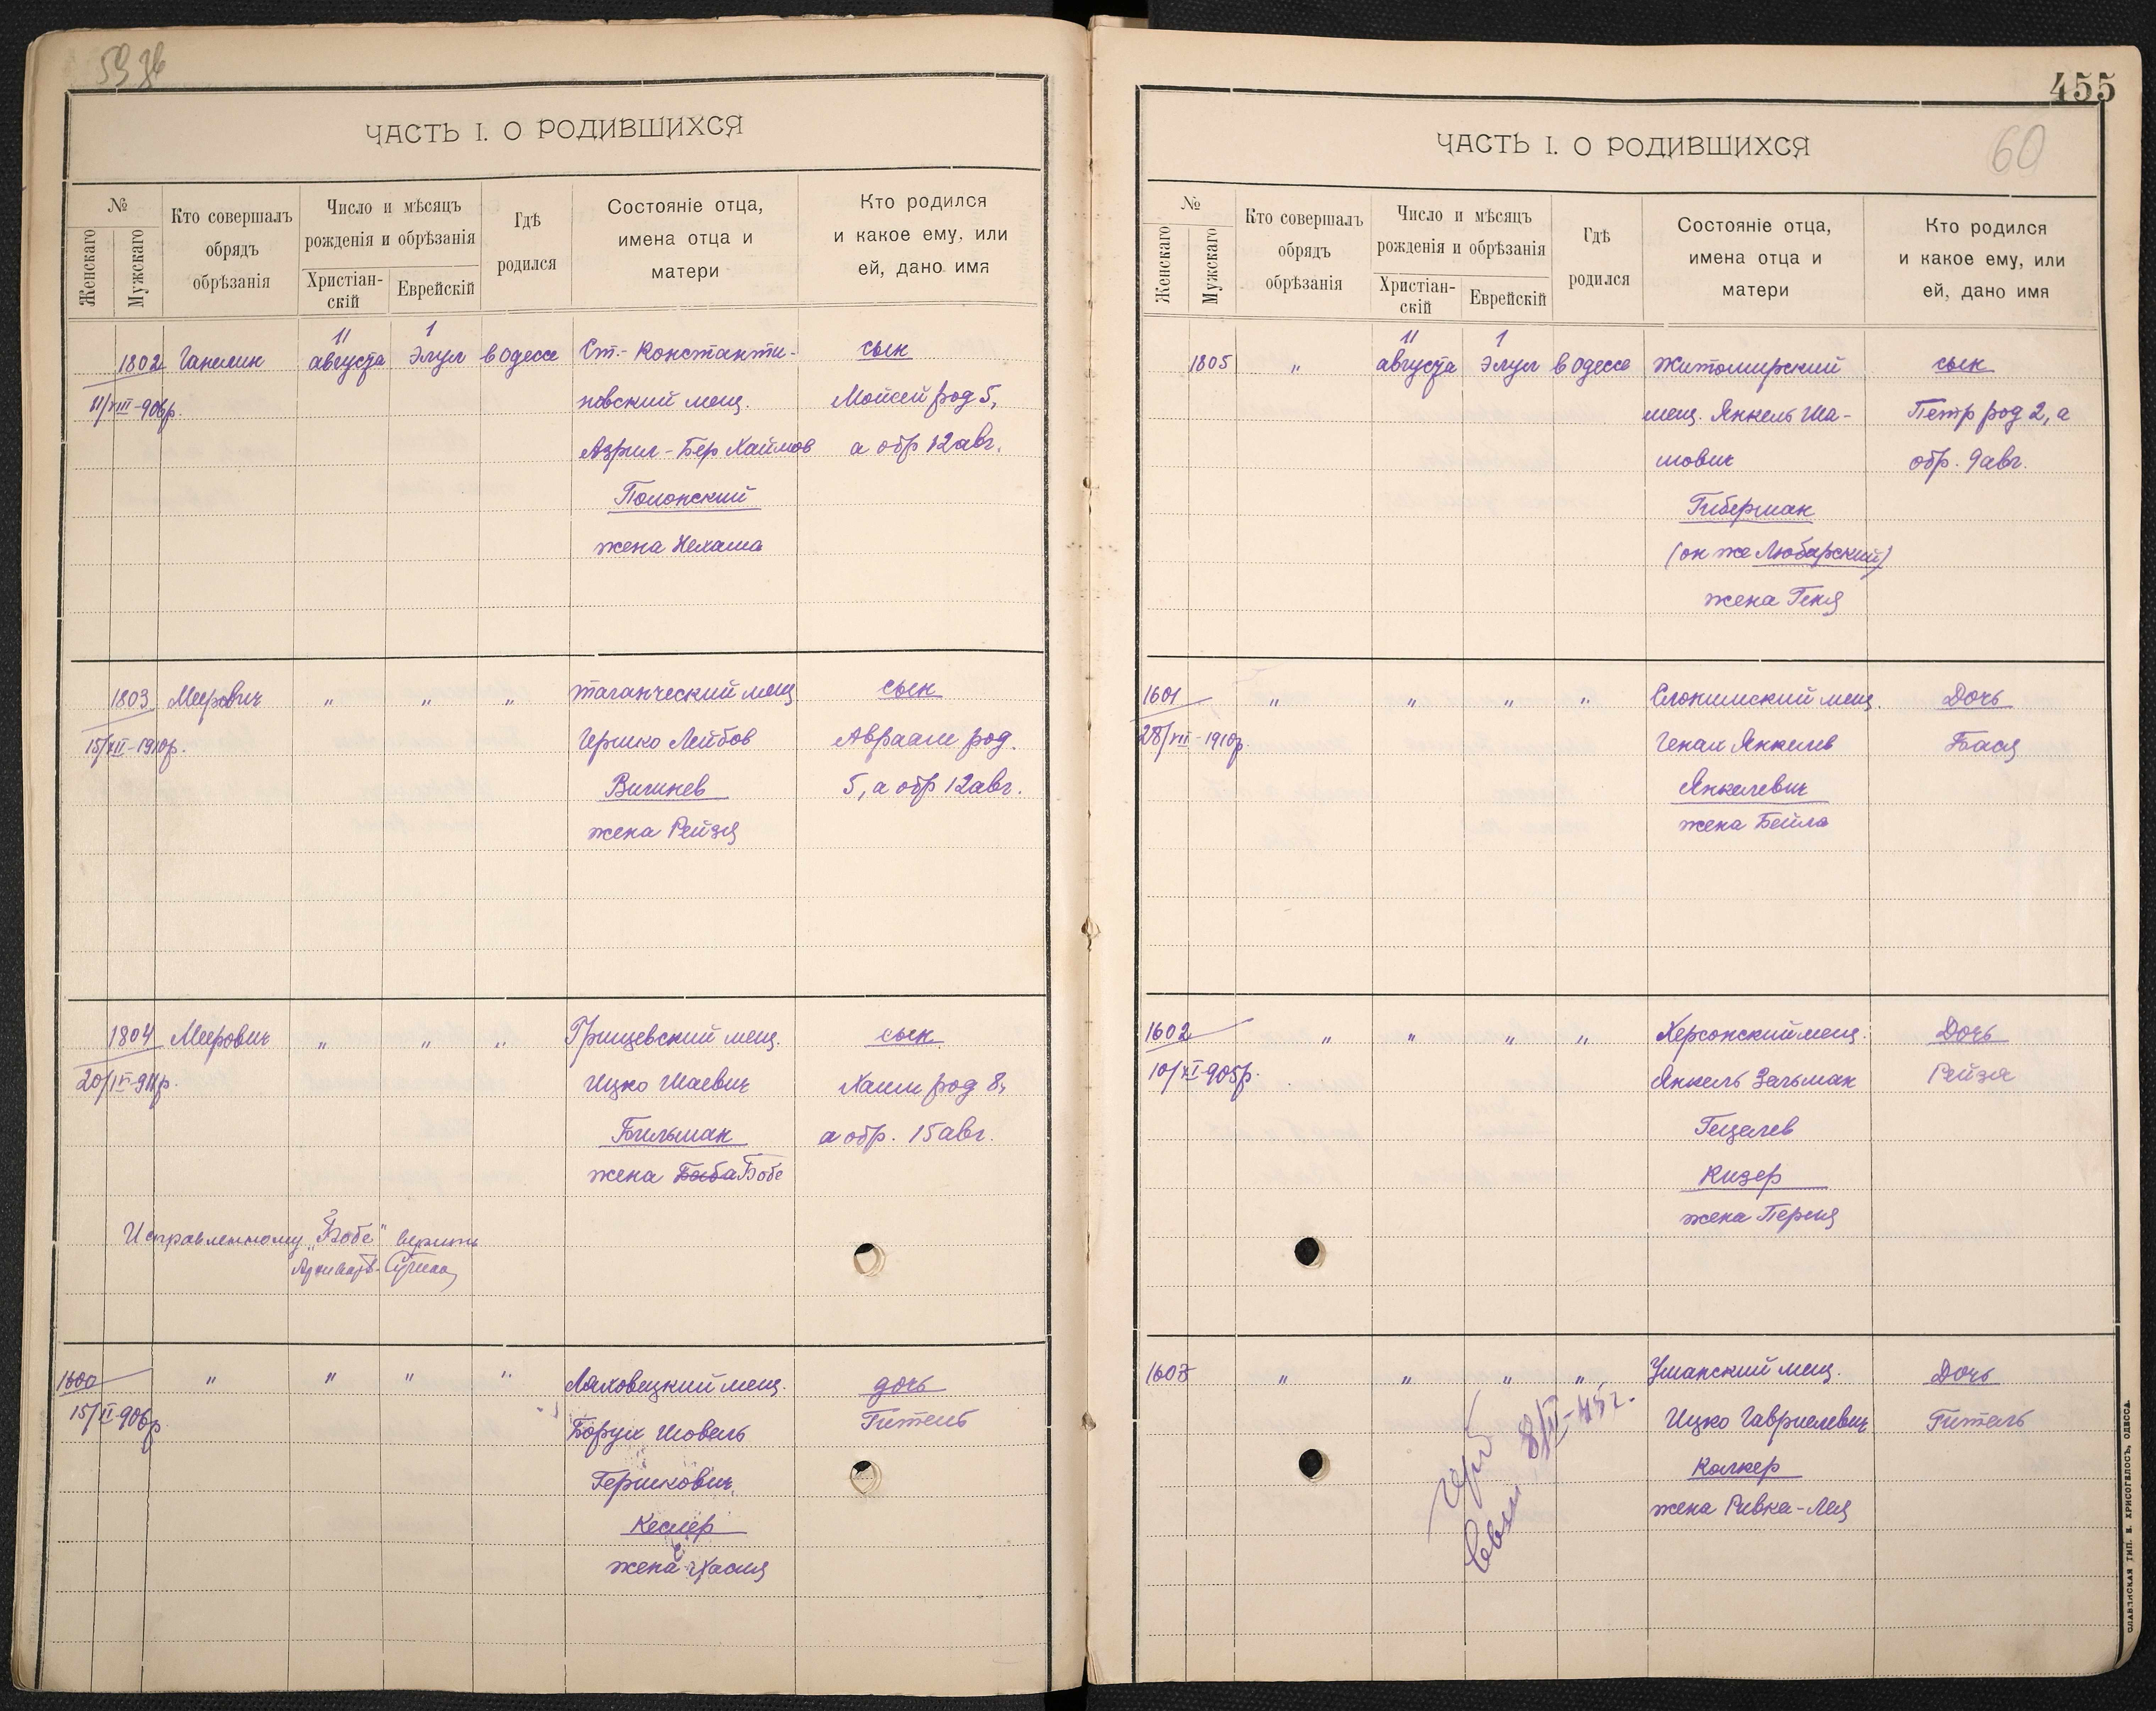 59 зв
ЧАСТЬ I. О РОДИВШИХСЯ
№
Женскаго
Мужскаго
Кто совершалъ
обрядъ
обрѣзанія
Число и мѣсяцъ
рожденія и обрѣзанія
Христіан-
скій
Еврейскій
Гдѣ
родился
Состояніе отца,
имена отца и
матери
Кто родился
и какое ему, или
ей, дано имя
1802 Ганелин 11 августа 1 Элул в Одессе Ст.-Константи- сын
11/VIII-906р. новский мещ. Мойсей род 5,
Азрил-Бер Хаимов а обр 12 авг.
Полонский
жена Нехама
1803 Меерович " " " таганческий мещ сын
15/XII-1910р. Гершко Лейбов Авраам род.
Вишнев 5, а обр 12 авг.
жена Рейзя
1804 Меерович " " " Грицевский мещ. сын
20/IV-911р. Ицко Шаевич Хаим род 8,
Бильман а обр. 15 авг.
жена Баба Бобе
Исправленному „Бобе" верить
1600 " " " " Ляховецкий мещ. дочь
15/II-906р. Борух Шовель Гитель
Гершкович
Кеслер
жена Хасия
455
60
ЧАСТЬ I. О РОДИВШИХСЯ
№
Женскаго
Мужскаго
Кто совершалъ
обрядъ
обрѣзанія
Число и мѣсяцъ
рожденія и обрѣзанія
Христіан-
скій
Еврейскій
Гдѣ
родился
Состояніе отца,
имена отца и
матери
Кто родился
и какое ему, или
ей, дано имя
1805 " 11 августа 1 Элул в Одессе Житомирский сын
мещ. Янкель Ша- Петр род 2, а
мович обр. 9 авг.
Гиберман
(он же Любарский)
жена Геня
1601 " " " " Слонимский мещ. Дочь
28/VII-1910р. Генах Янкелев Бася
Янкелевич
жена Бейла
1602 " " " " Херсонский мещ. Дочь
10/XI-905р. Янкель Зальман Рейзя
Гецелев
Кизер
жена Перля
1603 " " " " Уманский мещ. Дочь
Ицко Гавриелевич Гитель
Калкер
жена Ривка-Лея
8/II-45г.
СЛАВЯНСКАЯ ТИП. Е. ХРИСОГЕЛОСЪ, ОДЕССА.